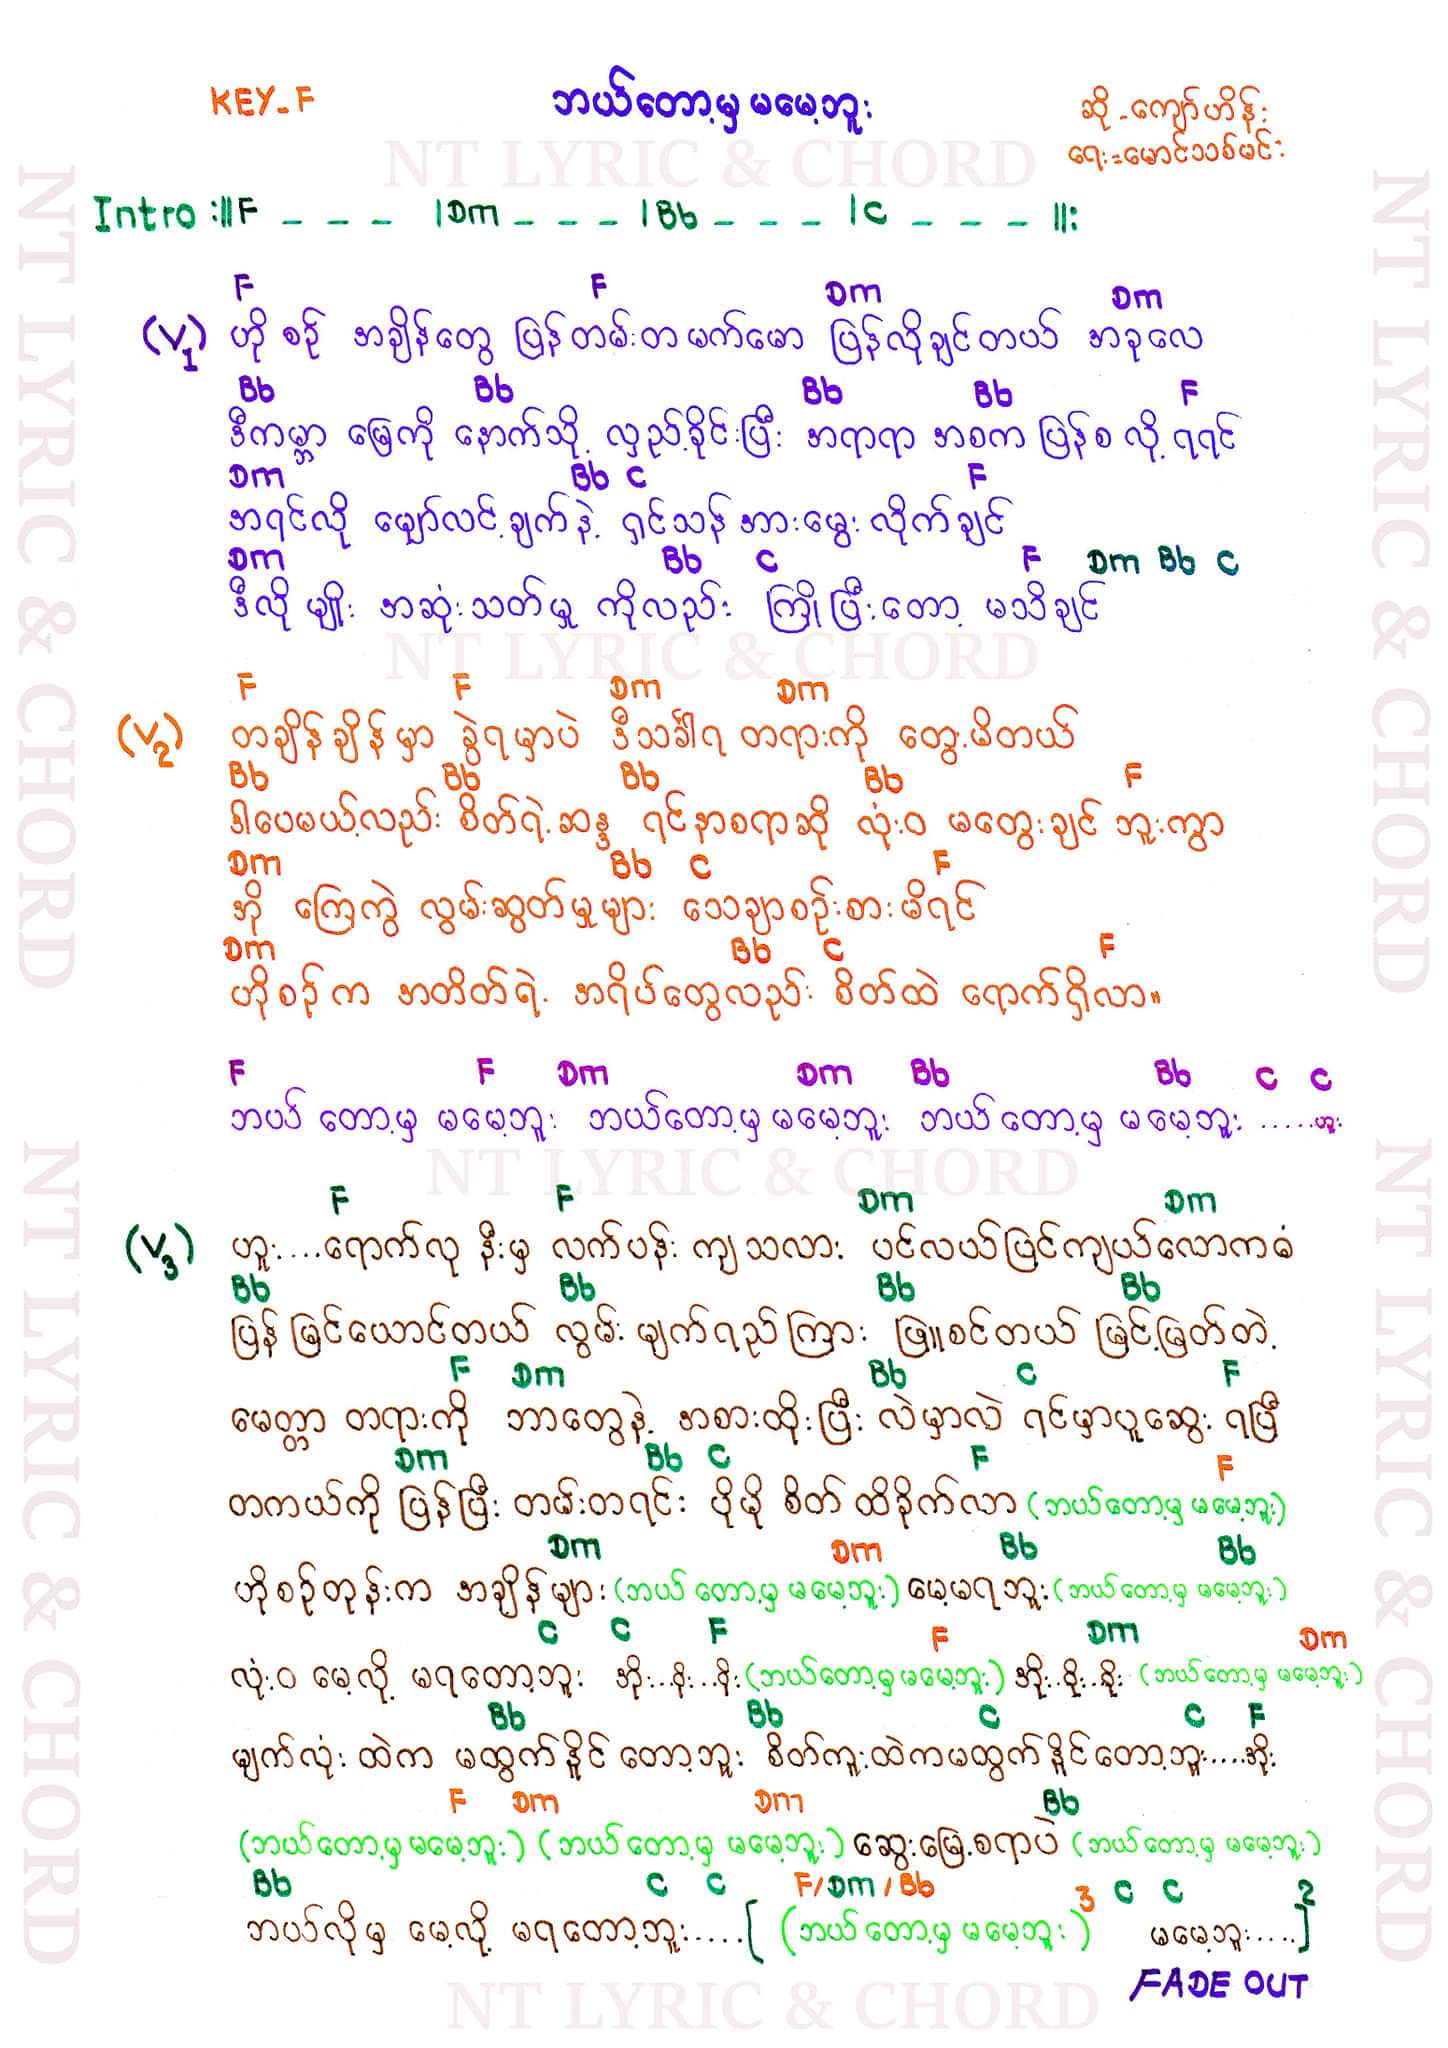 KEY-F
ဘယ်တော့မှ မမေ့ဘူး
ဆို-ကျော်ဟိန်း
ရေး=မောင်သစ်မင်း
NT LYRIC & CHORD
Intro :||F _ _ _ |Dm _ _ _ |Bb _ _ _ |C _ _ _ ||:
F F Dm Dm
(V1) ဟိုစဉ် အချိန်တွေ ပြန်တမ်းတမက်မော ပြန်လိုချင်တယ် အခုလေ
Bb Bb Bb Bb F
ဒီကမ္ဘာ မြေကို နောက်သို့ လှည့်ခိုင်းပြီး အရာရာ အစက ပြန်စလို့ ရရင်
Dm Bb C F
အရင်လို မျှော်လင့်ချက်နဲ့ ရှင်သန် အားမွေးလိုက်ချင်
Dm Bb C F Dm Bb C
ဒီလိုမျိုး အဆုံးသတ်မှု ကိုလည်း ကြိုပြီးတော့ မသိချင်
NT LYRIC & CHORD
F F Dm Dm
(V2) တချိန်ချိန်မှာ ခွဲရမှာပဲ ဒီသင်္ခါရ တရားကို တွေးမိတယ်
Bb Bb Bb Bb F
ဒါပေမယ့်လည်း စိတ်ရဲ့ဆန္ဒ ရင်နာစရာဆို လုံးဝ မတွေးချင်ဘူးကွာ
Dm Bb C F
အို ကြေကွဲ လွမ်းဆွတ်မှုများ သေချာစဉ်းစားမိရင်
Dm Bb C F
ဟိုစဉ်က အတိတ်ရဲ့ အရိပ်တွေလည်း စိတ်ထဲ ရောက်ရှိလာ။
F F Dm Dm Bb Bb C C
ဘယ်တော့မှ မမေ့ဘူး ဘယ်တော့မှ မမေ့ဘူး ဘယ်တော့မှ မမေ့ဘူး .....ဟူး
NT LYRIC & CHORD
F F Dm Dm
(V3) ဟူး....ရောက်လု နီးမှ လက်ပန်းကျသလား ပင်လယ်ပြင်ကျယ်လောကဓံ
Bb Bb Bb Bb
ပြန်မြင်ယောင်တယ် လွမ်းမျက်ရည်ကြား ဖြူစင်တယ် မြင့်မြတ်တဲ့
F Dm Bb C F
မေတ္တာ တရားကို ဘာတွေနဲ့ အစားထိုးပြီး လဲမှာလဲ ရင်မှာပူဆွေးရပြီ
Dm Bb C F F
တကယ်ကို ပြန်ပြီး တမ်းတရင်း ပိုမို စိတ်ထိခိုက်လာ (ဘယ်တော့မှ မမေ့ဘူး)
Dm Dm Bb Bb
ဟိုစဉ်တုန်းက အချိန်များ (ဘယ်တော့မှ မမေ့ဘူး) မေ့မရဘူး (ဘယ်တော့မှ မမေ့ဘူး)
C C F F Dm Dm
လုံးဝ မေ့လို့ မရတော့ဘူး အိုး..အိုး..အိုး (ဘယ်တော့မှ မမေ့ဘူး) အိုး..အိုး..အိုး (ဘယ်တော့မှ မမေ့ဘူး)
Bb Bb C C F
မျက်လုံးထဲက မထွက်နိုင်တော့ဘူး စိတ်ကူးထဲကမထွက်နိုင်တော့ဘူး....အိုး
F Dm Dm Bb
(ဘယ်တော့မှ မမေ့ဘူး) (ဘယ်တော့မှ မမေ့ဘူး) ဆွေးမြေ့စရာပဲ (ဘယ်တော့မှ မမေ့ဘူး)
Bb C C F/Dm/Bb 3 C C 2
ဘယ်လိုမှ မေ့လို့ မရတော့ဘူး....[ (ဘယ်တော့မှ မမေ့ဘူး) မမေ့ဘူး....]
FADE OUT
NT LYRIC & CHORD
NT LYRIC & CHORD
NT LYRIC & CHORD
NT LYRIC & CHORD
NT LYRIC & CHORD